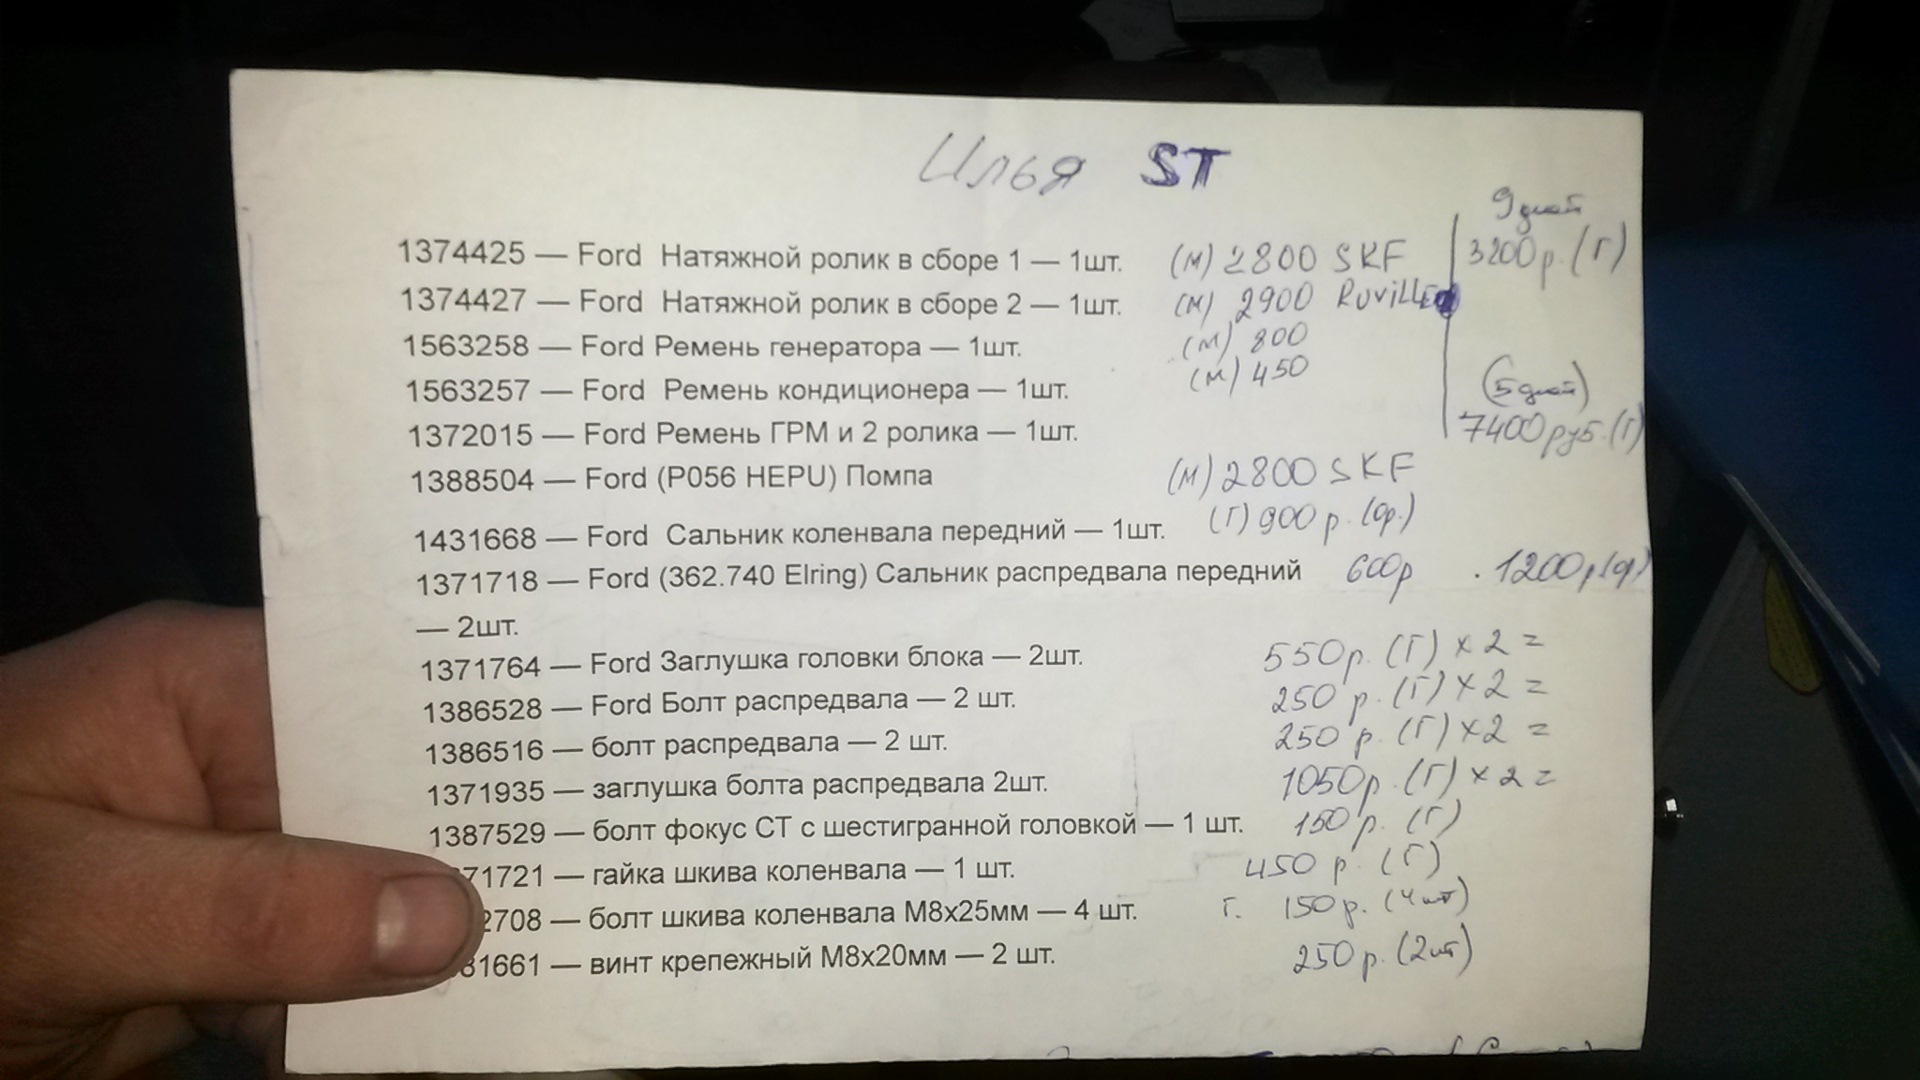 Илья ST
9 дней
1374425 — Ford Натяжной ролик в сборе 1 — 1шт. (м) 2800 SKF 3200р. (Г)
1374427 — Ford Натяжной ролик в сборе 2 — 1шт. (м) 2900 RUVILLE
1563258 — Ford Ремень генератора — 1шт. (м) 800
1563257 — Ford Ремень кондиционера — 1шт. (м) 450 (5 дней)
1372015 — Ford Ремень ГРМ и 2 ролика — 1шт. 7400 руб. (Г)
1388504 — Ford (P056 HEPU) Помпа (м) 2800 SKF
1431668 — Ford Сальник коленвала передний — 1шт. (Г) 900 р. (ор.)
1371718 — Ford (362.740 Elring) Сальник распредвала передний 600р . 1200р (ор)
— 2шт.
1371764 — Ford Заглушка головки блока — 2шт. 550р. (Г) х 2 =
1386528 — Ford Болт распредвала — 2 шт. 250 р. (Г) х 2 =
1386516 — болт распредвала — 2 шт. 250 р. (Г) х2 =
1371935 — заглушка болта распредвала 2шт. 1050р. (Г) х 2 =
1387529 — болт фокус СТ с шестигранной головкой — 1 шт. 150 р. (Г)
71721 — гайка шкива коленвала — 1 шт. 450 р. (Г)
2708 — болт шкива коленвала М8х25мм — 4 шт. г. 150р. (4шт)
81661 — винт крепежный М8х20мм — 2 шт. 250 р. (2шт)